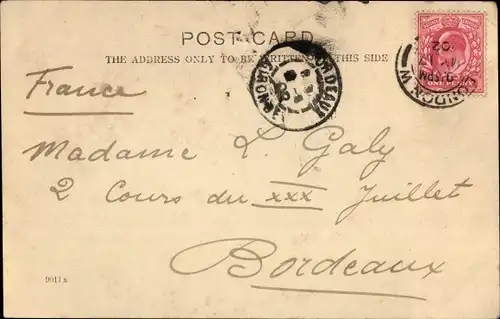 POST CARD
THE ADDRESS ONLY TO BE WRITTEN THIS SIDE
ONE PENNY
LONDON W
02
BORDEAUX
GIRONDE
France
Madame L. Galy
2 Cours du XXX Juillet
Bordeaux
9011 x